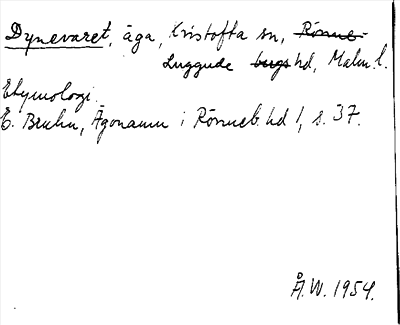 Dynevaret, äga, Kristofta sn, Rönne-
Luggude bergs hd, Malm. l.
Etymologi.
E. Bruhn, Ägonamn i Rönneb. hd 1, s. 37.
Å.W. 1954.